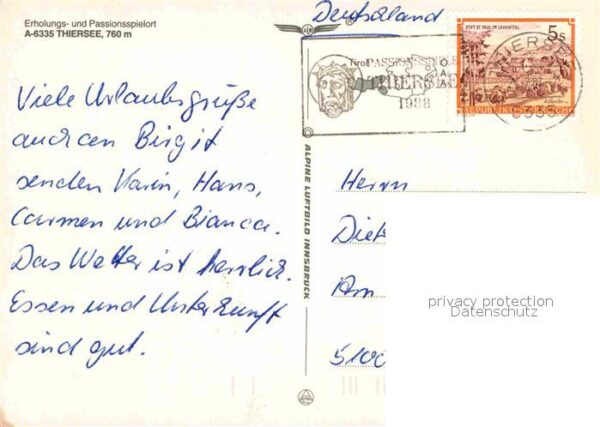 Erholungs- und Passionsspielort
A-6335 THIERSEE, 760 m
Deutschland
STIFT ST. PAUL IM LAVANTTAL
5s
REPUBLIK ÖSTERREICH
Tirol PASSIONSSPIELE
THIERSEE
1988
THIERSEE
6335
Viele Urlaubsgrüße
auch an Birgit
senden Karin, Hans,
Carmen und Bianca.
Das Wetter ist herrlich.
Essen und Unterkunft
sind gut.
ALPINE LUFTBILD INNSBRUCK
Herrn
Diet
Am
510
privacy protection
Datenschutz